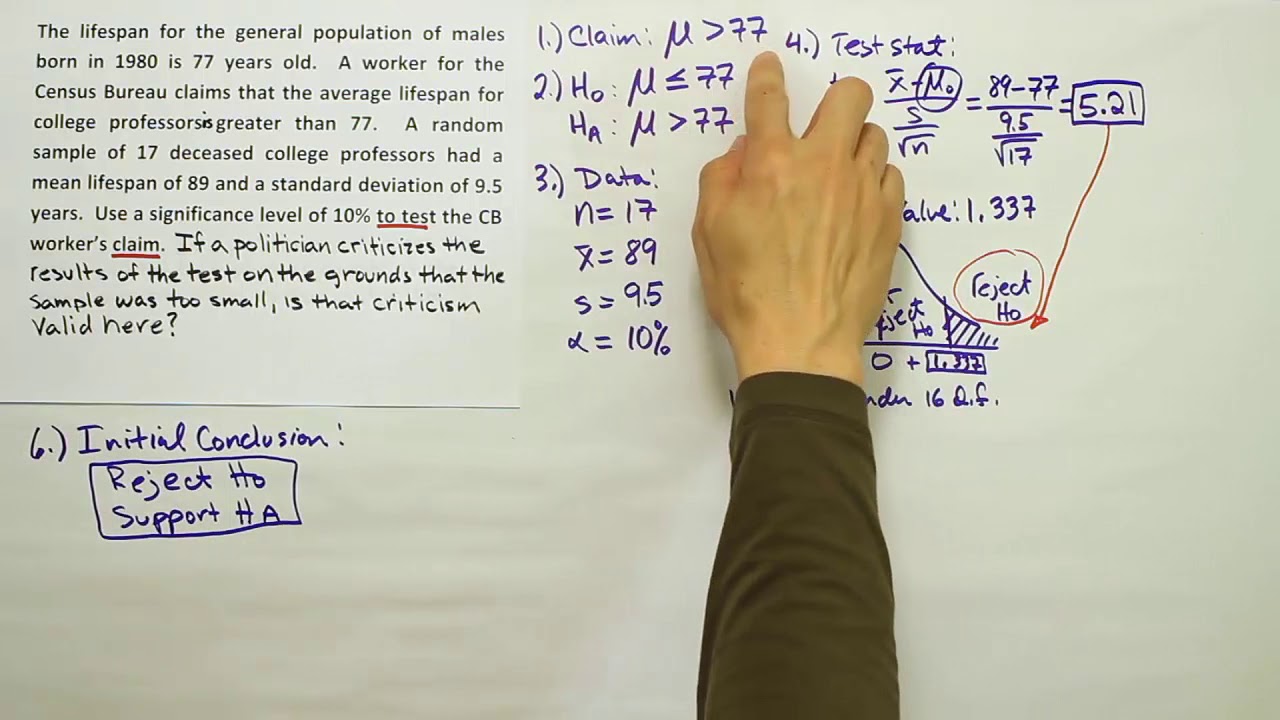 The lifespan for the general population of males
born in 1980 is 77 years old. A worker for the
Census Bureau claims that the average lifespan for
college professors is greater than 77. A random
sample of 17 deceased college professors had a
mean lifespan of 89 and a standard deviation of 9.5
years. Use a significance level of 10% to test the CB
worker's claim. If a politician criticizes the
results of the test on the grounds that the
sample was too small, is that criticism
valid here?
1.) Claim: μ > 77
2.) Ho: μ ≤ 77
HA: μ > 77
3.) Data:
n = 17
x̄ = 89
s = 9.5
α = 10%
4.) Test stat:
x̄ - μo / s/√n = 89-77 / 9.5/√17 = 5.21
alue: 1.337
reject Ho
ject Ho
0 + 1.337
nder 16 D.f.
6.) Initial Conclusion:
Reject Ho
Support HA